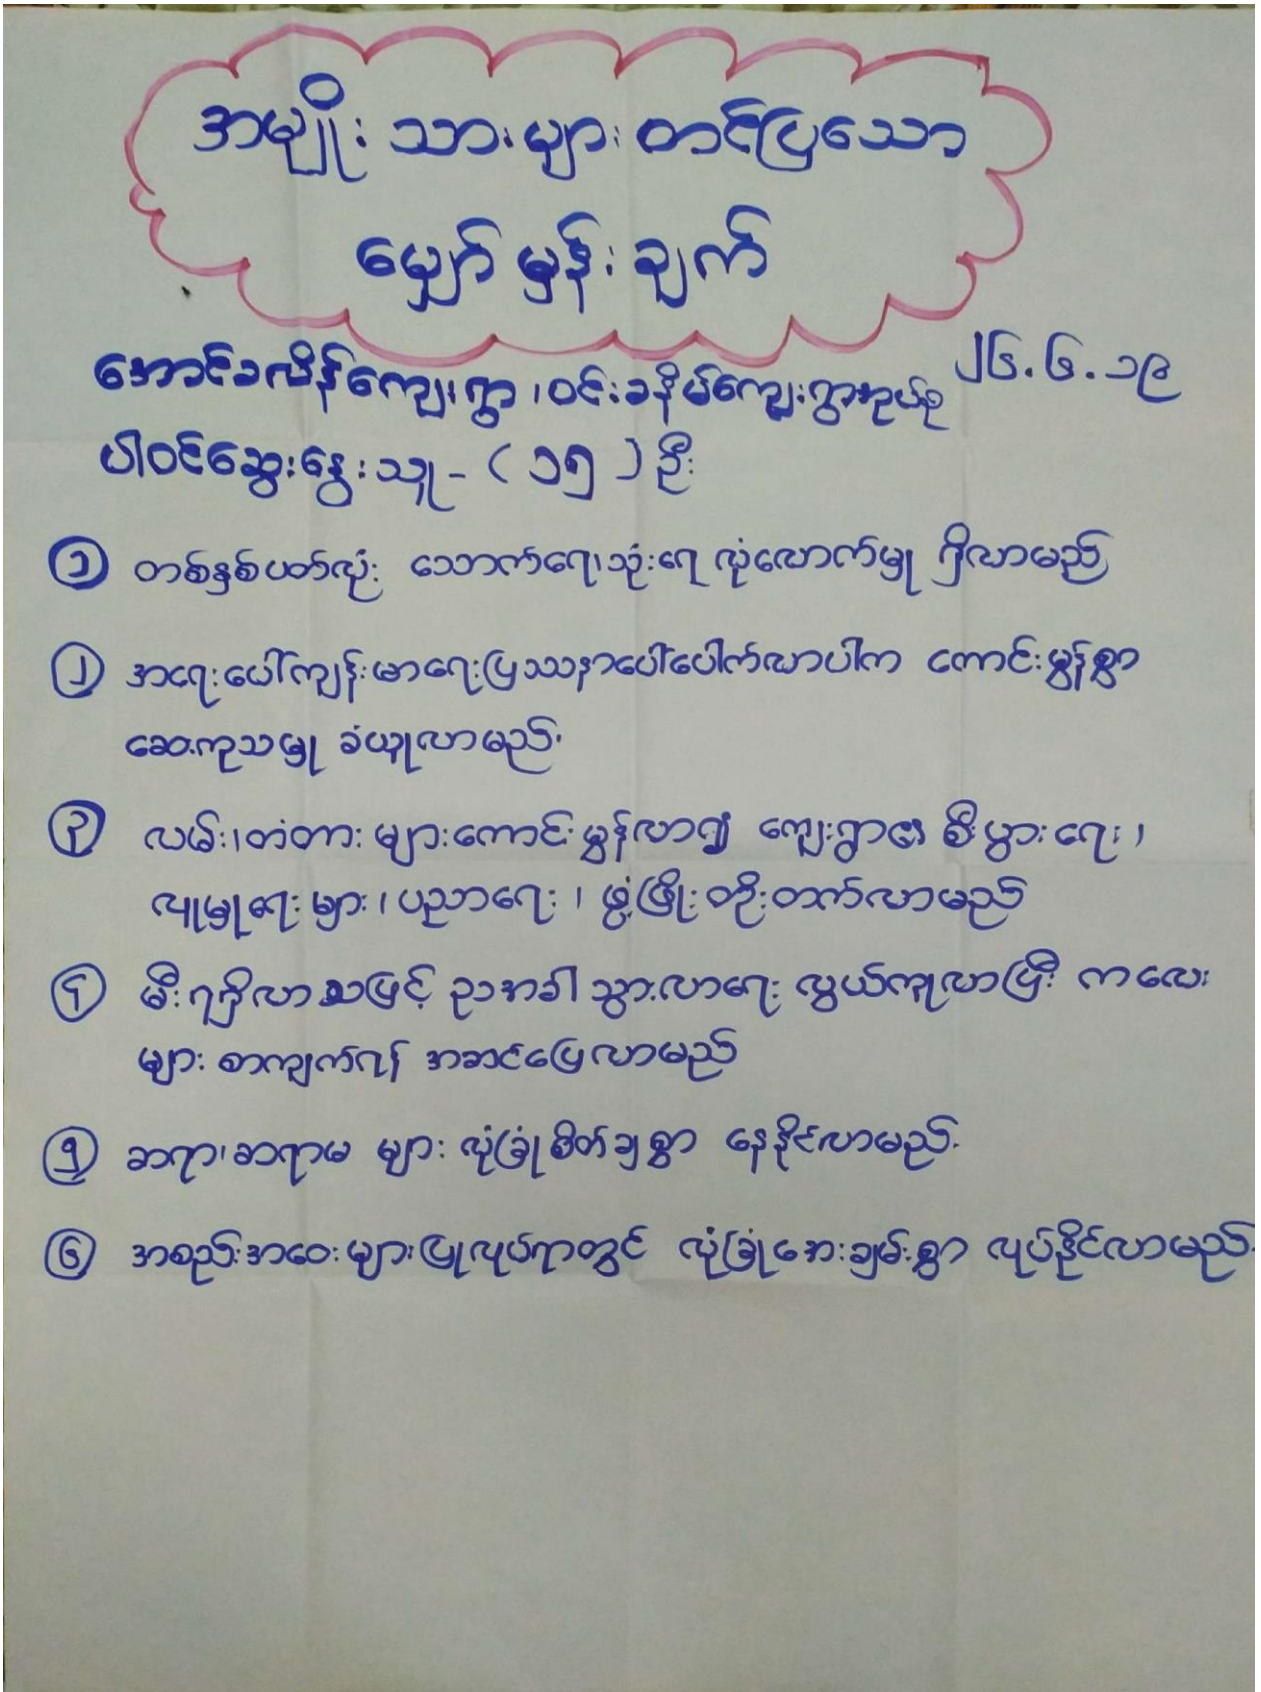 အမျိုးသားများ တင်ပြသော
မျှော်မှန်းချက်
အောင်ခလိန်ကျေးရွာ၊ ဝင်းခနိမ်ကျေးရွာအုပ်စု ၂၆.၆.၁၉
ပါဝင်ဆွေးနွေးသူ - ( ၁၅ ) ဦး
၁ တစ်နှစ်ပတ်လုံး သောက်ရေ၊သုံးရေ လုံလောက်မှု ရှိလာမည်
၂ အရေးပေါ်ကျန်းမာရေးပြဿနာပေါ်ပေါက်လာပါက ကောင်းမွန်စွာ
ဆေးကုသမှု ခံယူလာမည်.
၃ လမ်း၊တံတား များကောင်းမွန်လာ၍ ကျေးရွာ၏ စီးပွားရေး၊
လူမှုရေးများ၊ ပညာရေး၊ ဖွံ့ဖြိုးတိုးတက်လာမည်
၄ မီးရရှိလာသဖြင့် ညအခါ သွားလာရေး လွယ်ကူလာပြီး ကလေး
များ စာကျက်ရန် အဆင်ပြေလာမည်
၅ ဆရာ၊ဆရာမ များ လုံခြုံစိတ်ချစွာ နေနိုင်လာမည်.
၆ အစည်းအဝေးများပြုလုပ်ရာတွင် လုံခြုံအေးချမ်းစွာ လုပ်နိုင်လာမည်.